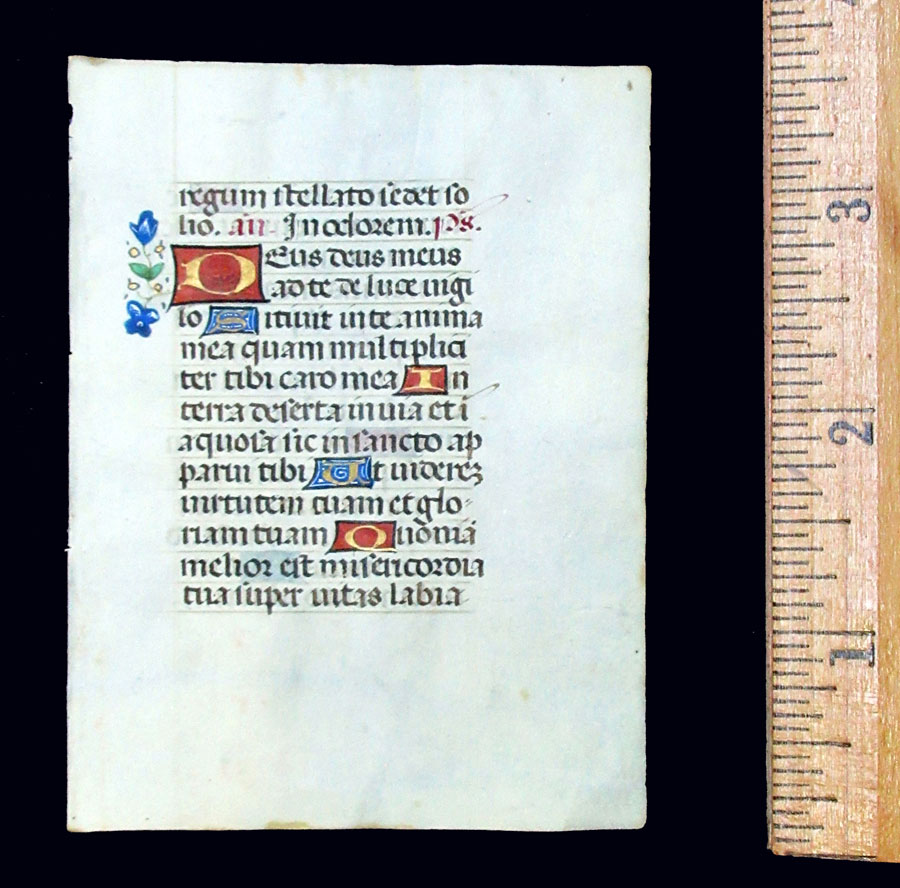 regum stellato sedet so
lio. an Jn odorem. ps.
DEus deus meus
ad te de luce uigi
lo Sitiuit in te anima
mea quam multiplici
ter tibi caro mea In
terra deserta inuia et i
aquosa sic in sancto ap
parui tibi Ut uiderez
uirtutem tuam et glo-
riam tuam Quoniā
melior est misericordia
tua super uitas labia
3
2
1